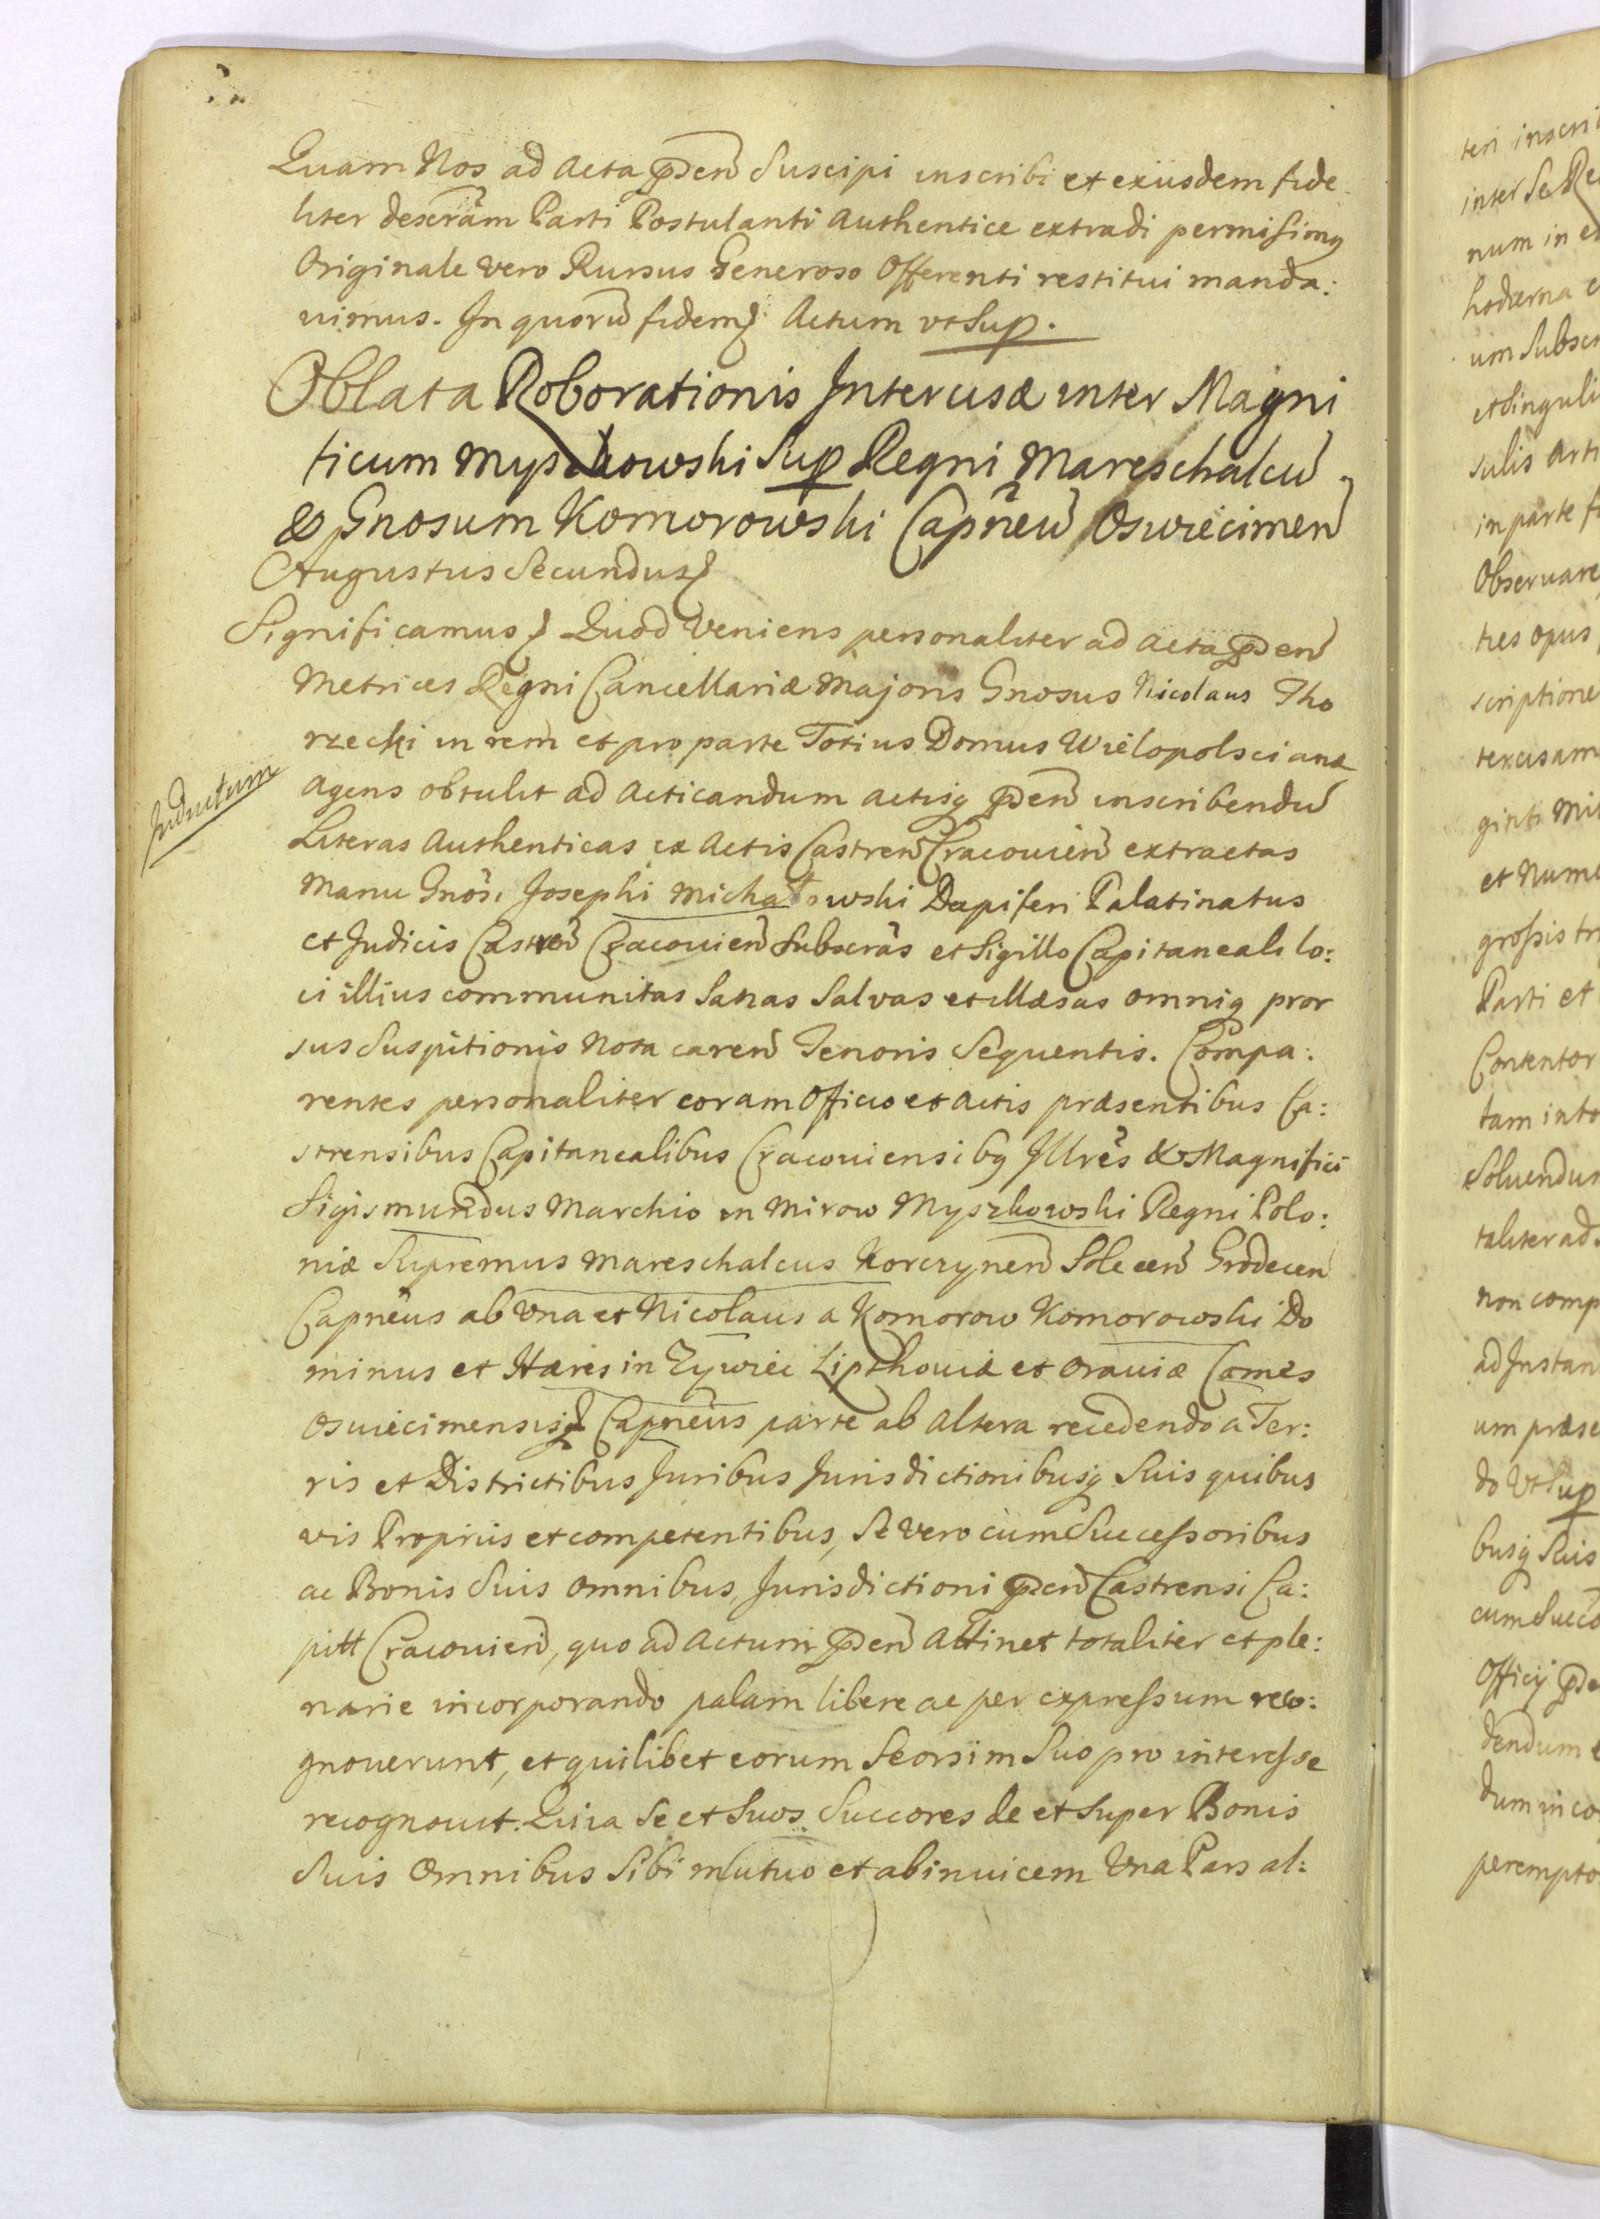 Quam Nos ad Acta pden̄ Suscipi inscribi et eiusdem fide
liter descrãm Parti Postulanti Authentice extradi permisimq
Originale vero Rursus Generoso Offerenti restitui manda:
uimus. In quorū fidem Actum vt Sup.
Oblata Roborationis Intercisæ inter Magni
ficum Myszkowski Sup Regni Mareschalcū
& Gnosum Komorowski Capneū Oswiecimen̄
Augustus Secundus
Significamus Quod Veniens personaliter ad Acta pden̄
Metrices Regni Cancellariæ Majoris Gnosus Nicolaus Tho
rzecki in rem et pro parte Totius Domus Wielopolscianæ
Agens obtulit ad Acticandum actisq pden̄ inscribendū
Indutum
Literas Authenticas ex Actis Castren̄ Cracouien̄ extractas
Manu Gnosi Josephi Michałowski Dapiferi Palatinatus
et Judicis Castren̄ Cracouien̄ Subscrãs et Sigillo Capitaneali lo:
ci illius communitas Sanas Salvas et illæsas omniq pror
sus Suspitionis Nota caren̄ Tenoris Sequentis. Compa:
rentes personaliter coram Officio et Actis præsentibus Ca:
strensibus Capitanealibus Cracouiensibq Illres & Magnifici
Sigismundus Marchio in Mirow Myszkowski Regni Polo:
niæ Supremus Mareschalcus Korczynen̄ Solecen̄ Grodecen̄
Capneus ab Vna et Nicolaus a Komorow Komorowski Do
minus et Hæres in Zywiec Lipthouiæ et Orauiæ Comes
Oswiecimensisq Capneus parte ab altera recedendo a Ter:
ris et Districtibus Juribus Jurisdictionibusq Suis quibus
vis Propriis et competentibus, Se vero cum Successoribus
ac Bonis Suis omnibus, Jurisdictioni pden̄ Castrensi Ca:
pitt Cracouien̄, quo ad Actum pden̄ Attinet totaliter et ple:
narie incorporando palam libere ac per expressum reco:
gnouerunt, et quilibet eorum Seorsim Suo pro interesse
recognouit. Quia Se et Suos Succores de et Super Bonis
Suis Omnibus Sibi mutuo et abinuicem Vna Pars al:
teri inscri
inter Se Re
num in
hodierna
um Subscr
et Singuli
sulis Arti
in parte
Observare
ties opus
scriptione
tercisam
ginti Mil
et Nume
grossis tri
Parti et
Conten tor
tam into
Soluendus
taliter ad
non comp
ad Instan
um præse
do Vt Sup
busq Suis
cum Succo
Officij pde
dendum
dum inco
perempto